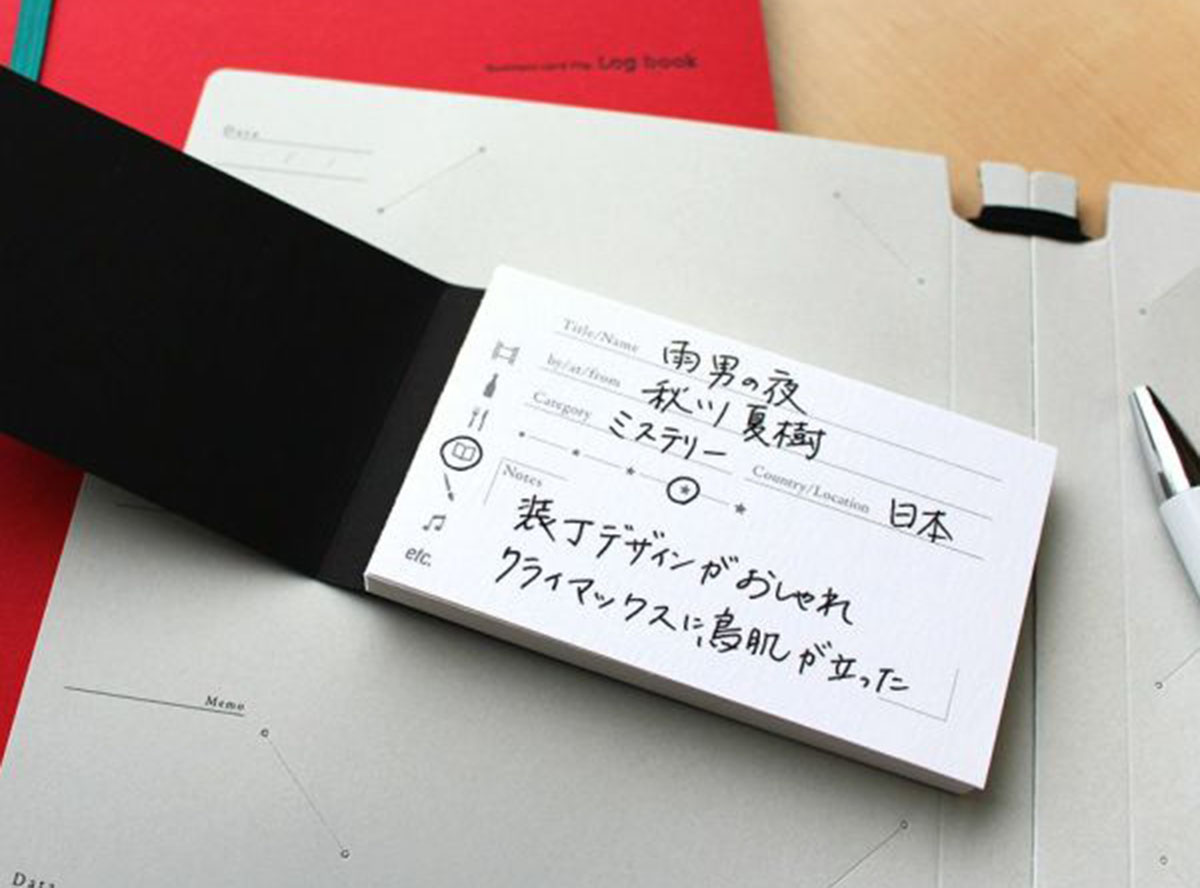 Business card File Log book
Date
Title/Name 雨男の夜
by/at/from 秋川夏樹
Category ミステリー
Country/Location 日本
Notes
装丁デザインがおしゃれ
クライマックスに鳥肌が立った
etc.
Memo
Data